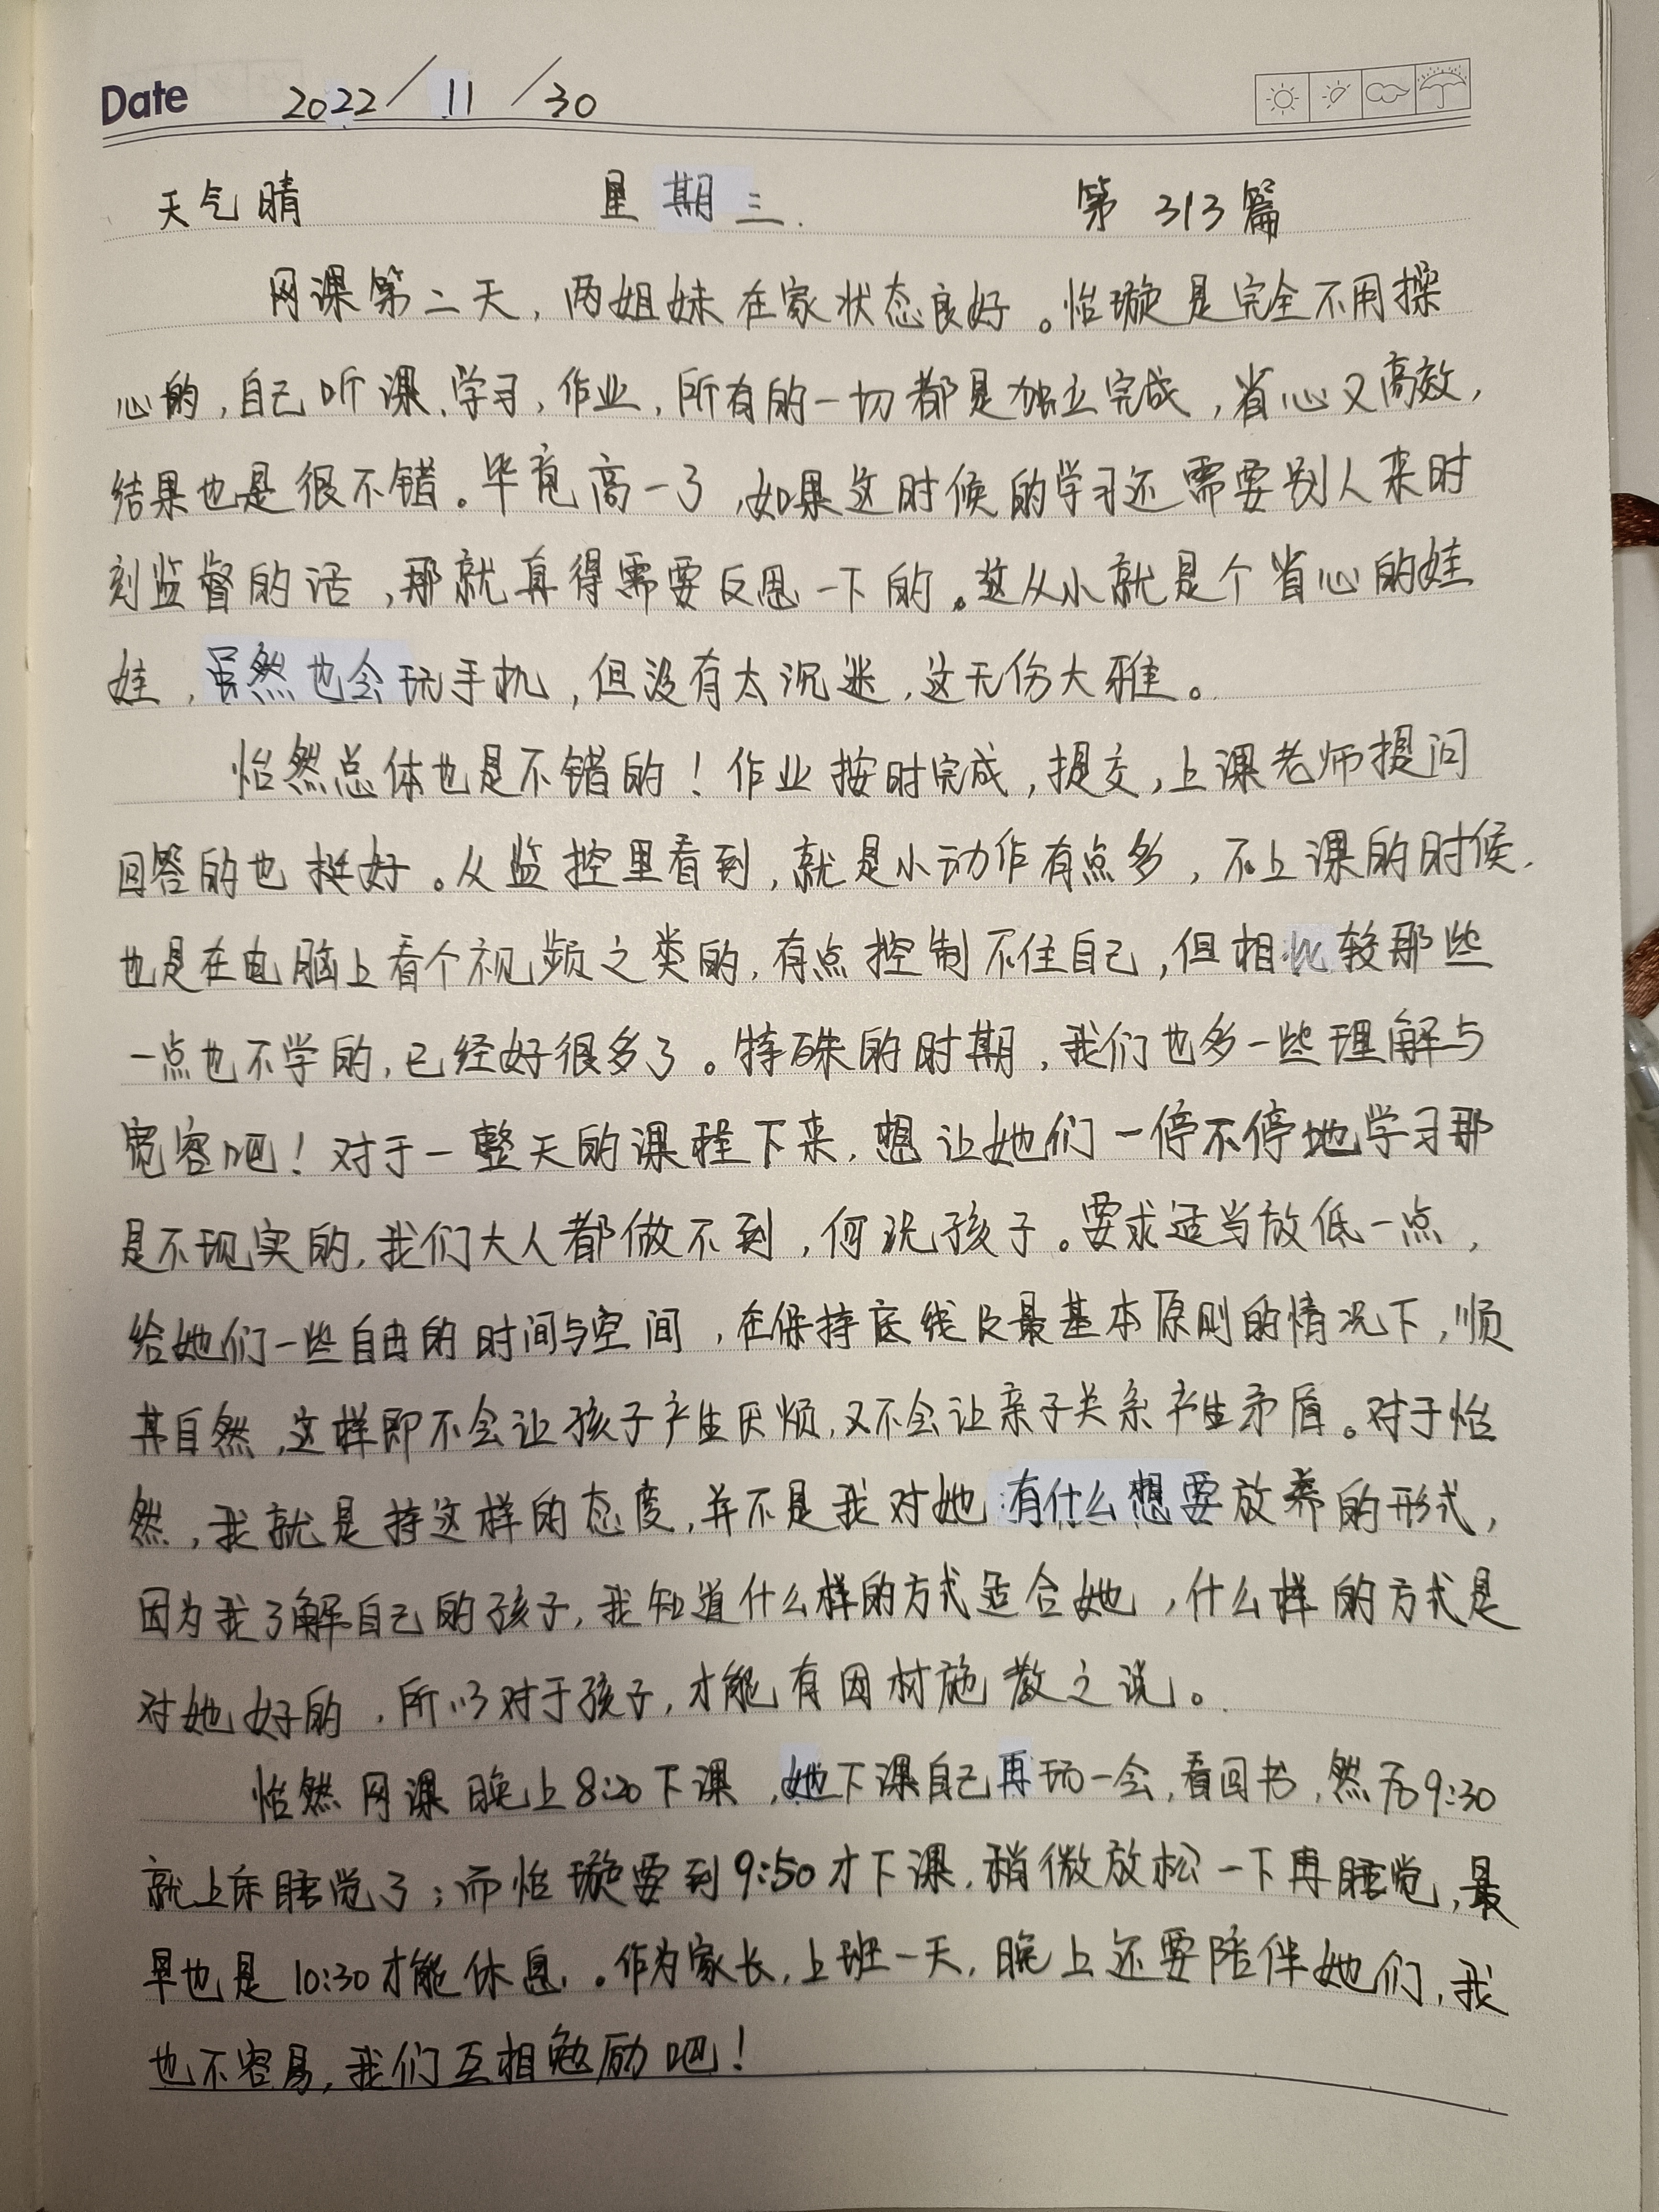 Date 2022/11/30
天气晴 星期三. 第313篇
网课第二天，两姐妹在家状态良好。怡璇是完全不用操
心的，自己听课、学习，作业，所有的一切都是独立完成，省心又高效，
结果也是很不错。毕竟高一了，如果这时候的学习还需要别人来时
刻监督的话，那就真得需要反思一下的。这从小就是个省心的娃
娃，虽然也会玩手机，但没有太沉迷，这无伤大雅。
怡然总体也是不错的！作业按时完成，提交，上课老师提问
回答的也挺好。从监控里看到，就是小动作有点多，不上课的时候，
也是在电脑上看个视频之类的，有点控制不住自己，但相比较那些
一点也不学的，已经好很多了。特殊的时期，我们也多一些理解与
宽容吧！对于一整天的课程下来，想让她们一停不停地学习那
是不现实的，我们大人都做不到，何况孩子。要求适当放低一点，
给她们一些自由的时间与空间，在保持底线及最基本原则的情况下，顺
其自然，这样即不会让孩子产生厌烦，又不会让亲子关系产生矛盾。对于怡
然，我就是持这样的态度，并不是我对她有什么想要放养的形式，
因为我了解自己的孩子，我知道什么样的方式适合她，什么样的方式是
对她好的，所以对于孩子，才能有因材施教之说。
怡然网课晚上8:20下课，她下课自己再玩一会，看回书，然后9:30
就上床睡觉了；而怡璇要到9:50才下课，稍微放松一下再睡觉，最
早也是10:30才能休息。作为家长，上班一天，晚上还要陪伴她们，我
也不容易，我们互相勉励吧！